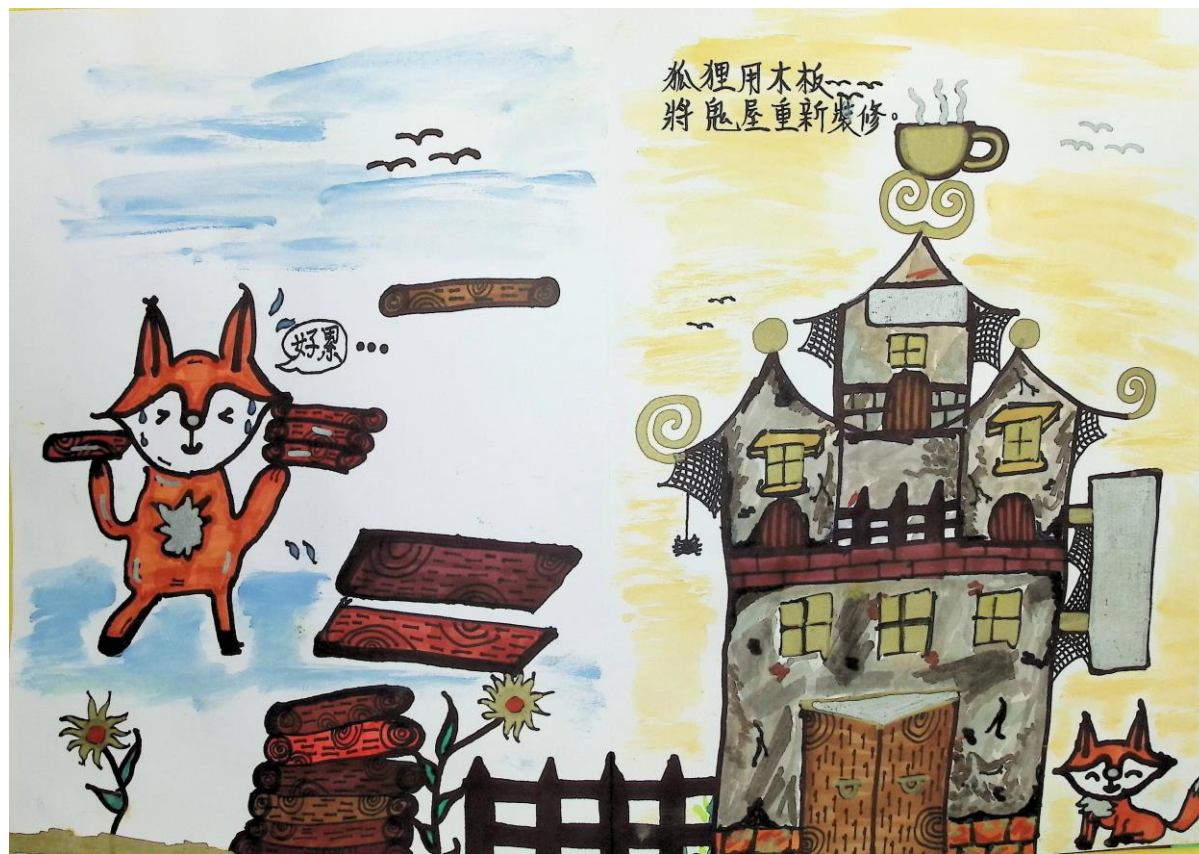 狐狸用木板~~~
將鬼屋重新裝修。
好累...